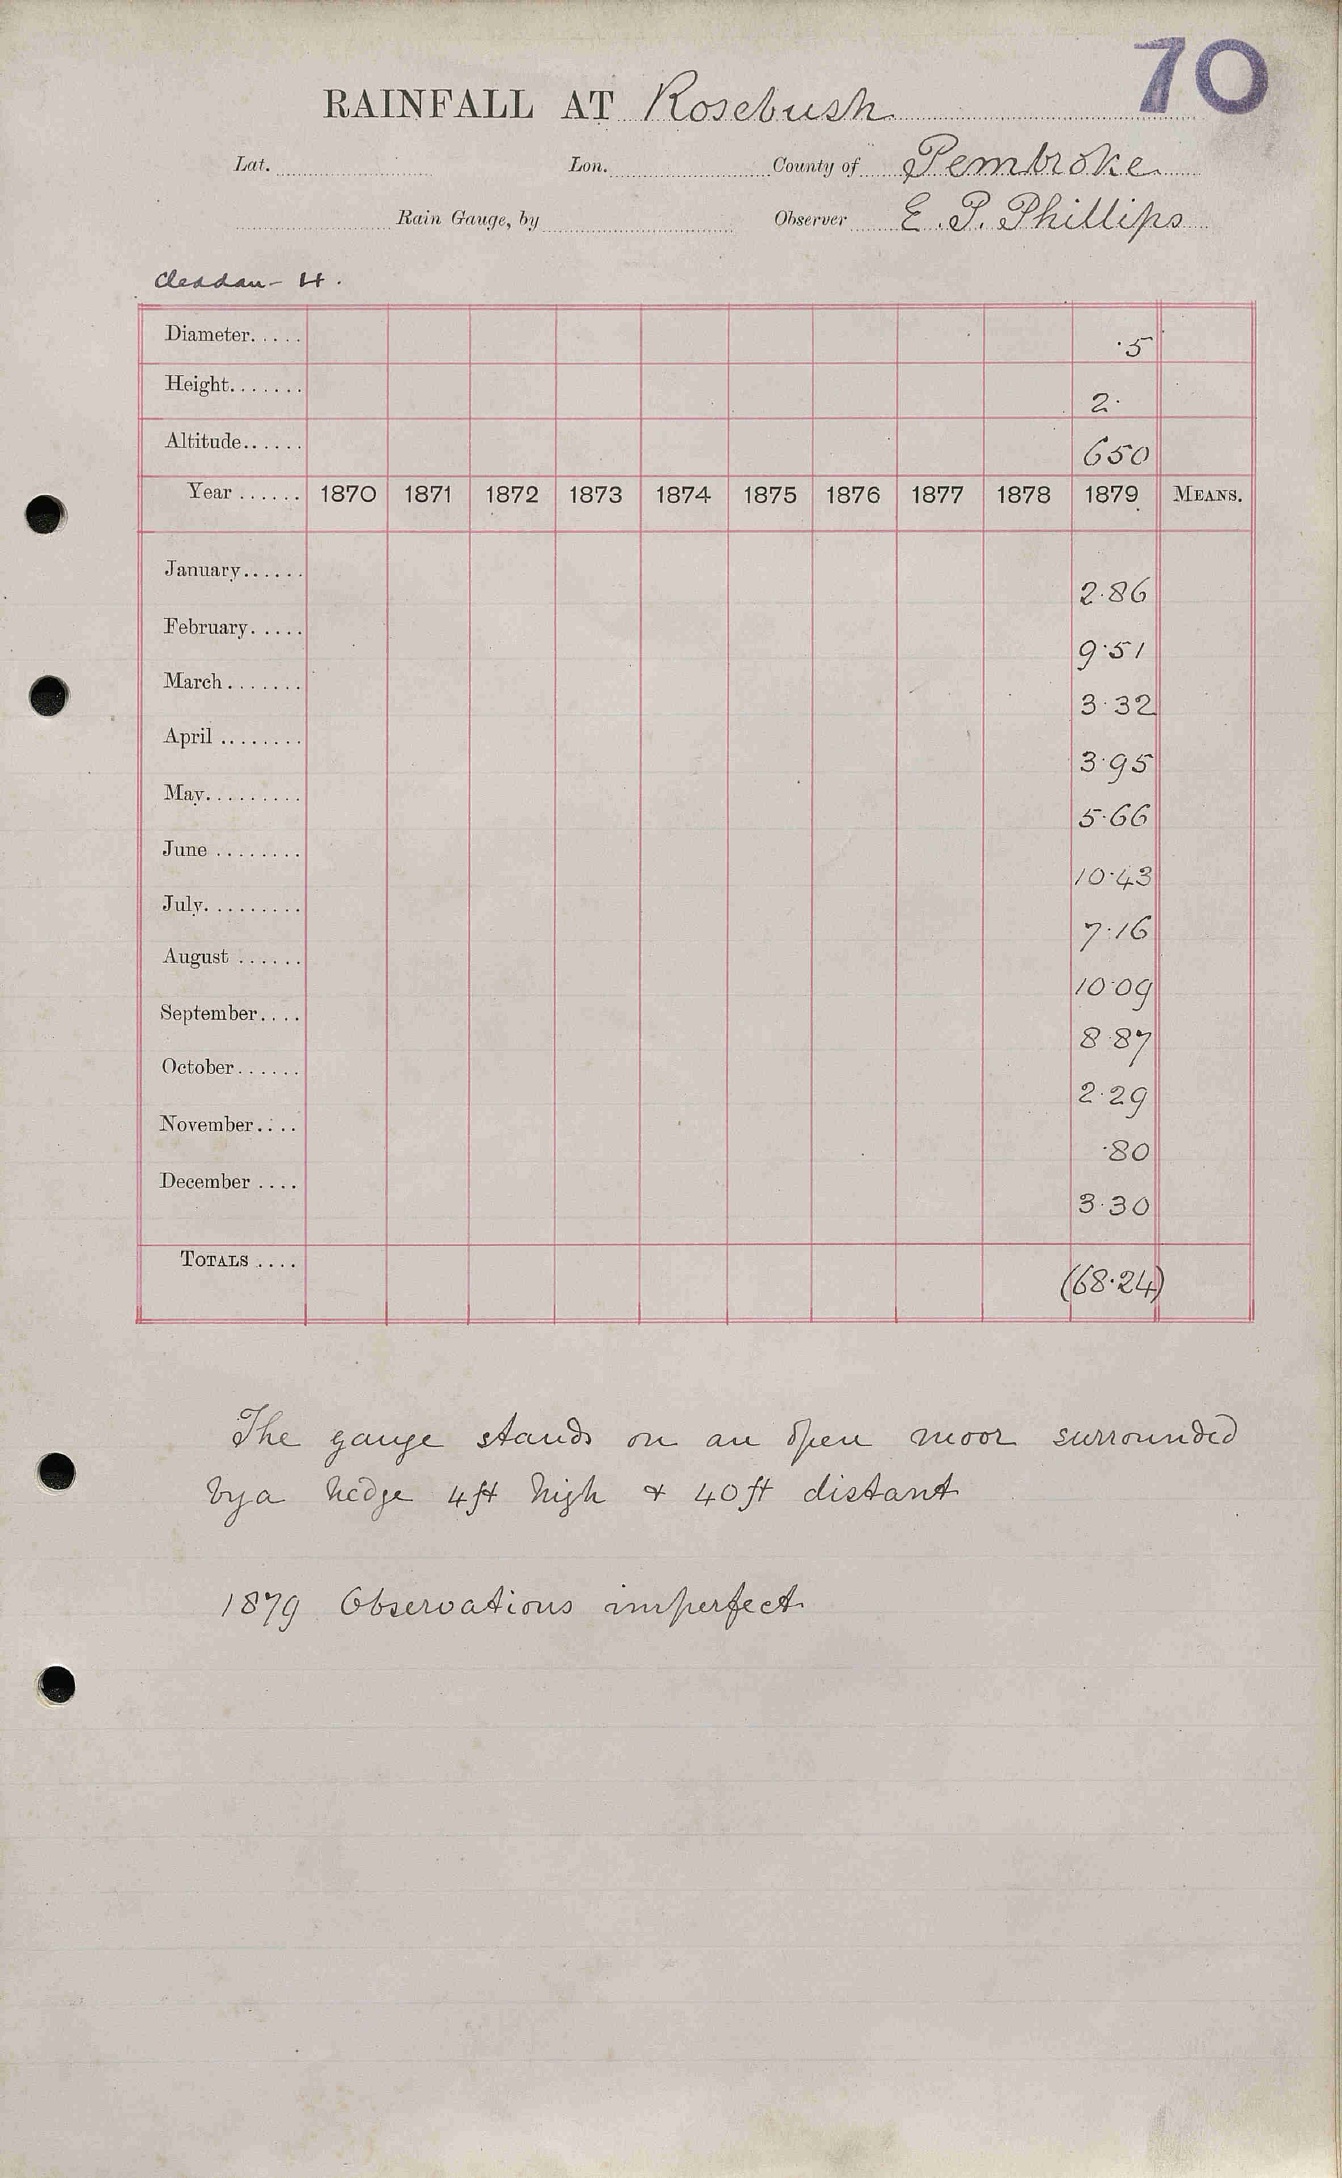 70
RAINFALL AT Rosebush
Lat. Lon. County of Pembroke
Rain Gauge, by Observer E. P. Phillips
Cleddau - H.
Diameter..... ·5
Height....... 2·
Altitude...... 650
Year ...... 1870 1871 1872 1873 1874 1875 1876 1877 1878 1879 MEANS.
January...... 2·86
February..... 9·51
March....... 3·32
April ........ 3·95
May......... 5·66
June ........ 10·43
July......... 7·16
August ...... 10·09
September.... 8·87
October...... 2·29
November.... ·80
December .... 3·30
TOTALS .... (68·24)
The gauge stands on an open moor surrounded
by a hedge 4ft high & 40ft distant
1879 Observations imperfect